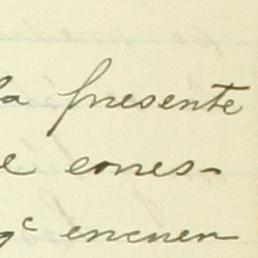 la presente
e cones-
qᶜ encuen